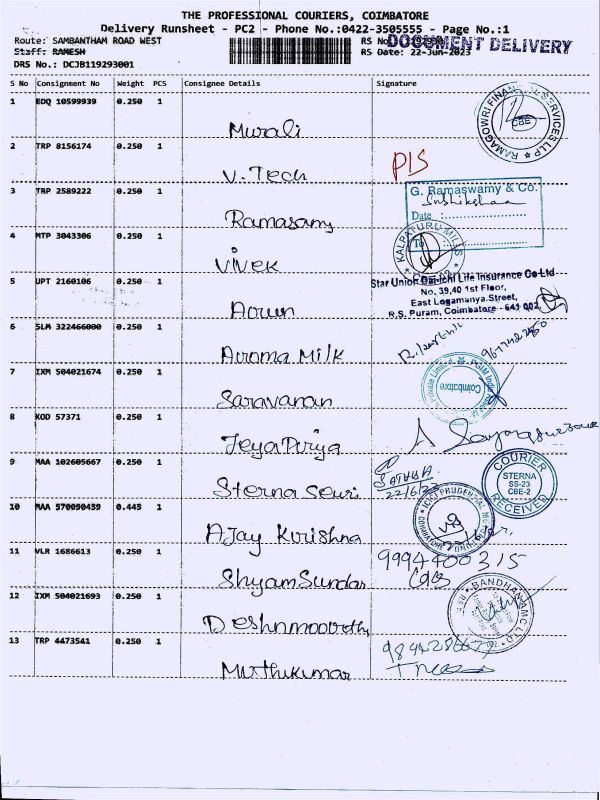 THE PROFESSIONAL COURIERS, COIMBATORE
Delivery Runsheet - PC2 - Phone No.:0422-3505555 - Page No.:1
Route: SAMBANTHAM ROAD WEST
RS No.:
DOCUMENT DELIVERY
Staff: RAMESH
RS Date: 22-Jun-2023
DRS No.: DCJB119293001
S No Consignment No Weight PCS Consignee Details Signature
1 EDQ 10599939 0.250 1
Murali
RAMAGOWRI FINANCIAL SERVICES LLP
CBE
2 TRP 8156174 0.250 1
V. Tech
3 TRP 2589222 0.250 1
Ramasamy
G. Ramaswamy & Co.
Date :
To :
4 MTP 3043306 0.250 1
Vivek
KALPATURU MILLS
5 UPT 2160106 0.250 1
Star Union Dai-ichi Life Insurance Co Ltd
No. 39,40 1st Floor,
East Logamanya Street,
R.S. Puram, Coimbatore - 641 002
6 SLM 322466000 0.250 1
Aroma Milk
7 IXM 504021674 0.250 1
Saravanan
Coimbatore
8 KOD 57371 0.250 1
9 MAA 102605667 0.250 1
22/6/23
COURIER
STERNA
SS-23
CBE-2
RECEIVED
10 MAA 570090459 0.445 1
ICICI PRUDENTIAL
COIMBATORE
11 VLR 1686613 0.250 1
9994400315
Shyam Sundar
12 IXM 504021693 0.250 1
BANDHAN AMC LTD
13 TRP 4473541 0.250 1
Muthukumar